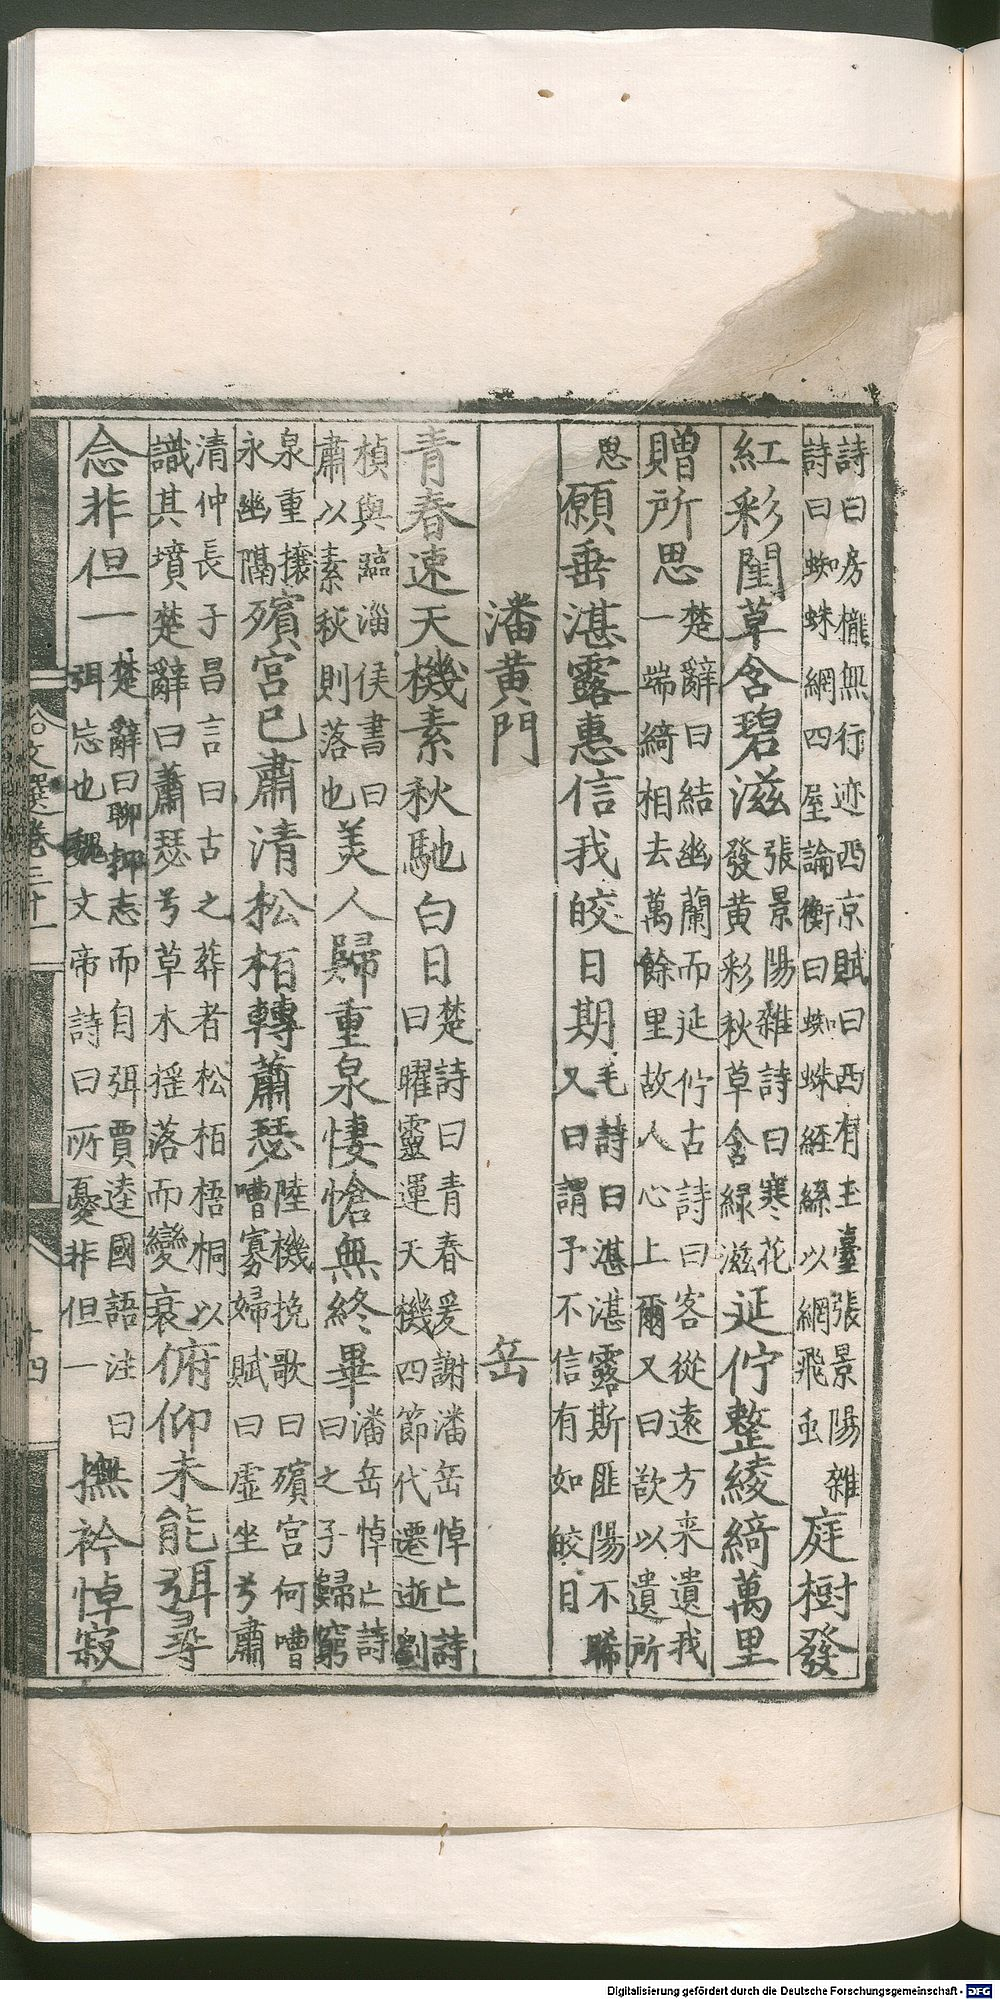 詩曰房櫳無行迹西京賦曰西有玉臺張景陽雜
詩曰蜘蛛網四屋論衡曰蜘蛛經絲以網飛䖝庭樹發
紅彩閨草含碧滋張景陽雜詩曰寒花
發黄彩秋草含緑滋延佇整綾綺萬里
贈所思楚辭曰結幽蘭而延佇古詩曰客從遠方来遺我
一端綺相去萬餘里故人心上爾又曰欲以遺所
思願垂湛露惠信我皎日期毛詩曰湛湛露斯匪陽不晞
又曰謂予不信有如皎日
潘黄門 岳
青春速天機素秋馳白日楚詩曰青春爰謝潘岳悼亡詩
曰曜靈運天機四節代遷逝劉
楨與臨淄侯書曰
肅以素秋則落也美人歸重泉悽愴無終畢潘岳悼亡詩
曰之子歸窮
泉重壤
永幽隔殯宫已肅清松栢轉蕭瑟陸機挽歌曰殯宫何嘈
嘈寡婦賦曰虚坐兮肅
清仲長子昌言曰古之葬者松栢梧桐以
識其墳楚辭曰蕭瑟兮草木揺落而變衰俯仰未能弭尋
念非但一楚辭曰聊抑志而自弭賈逵國語注曰
弭忘也魏文帝詩曰所憂非但一撫衿悼寂
文選卷三十一
十四
Digitalisierung gefördert durch die Deutsche Forschungsgemeinschaft - DFG